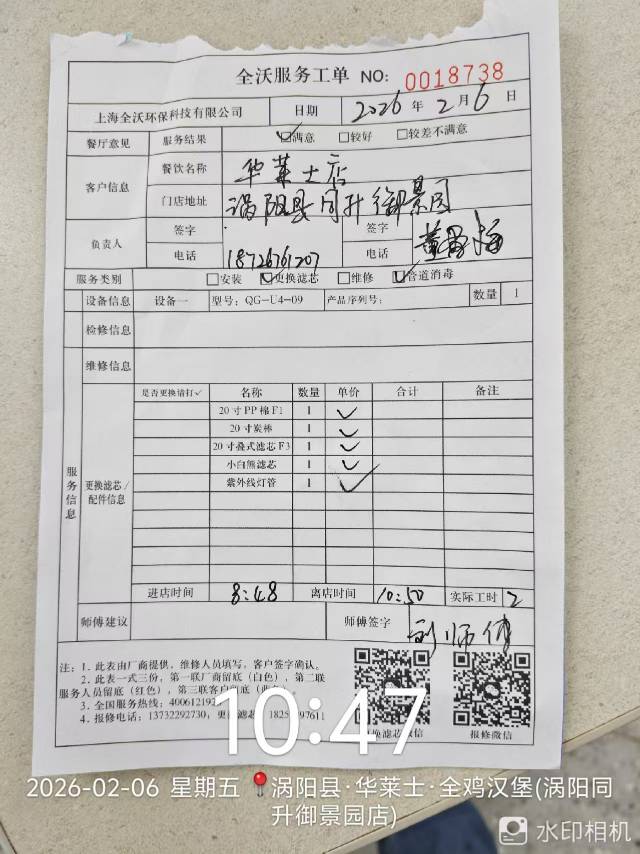 全沃服务工单 NO: 0018738
上海全沃环保科技有限公司 日期 2026年2月6日
餐厅意见 服务结果 ☑满意 □较好 □较差不满意
客户信息 餐饮名称 华莱士店
门店地址 涡阳县同升御景园
负责人 签字 签字
电话 18726761207 电话
服务类别 □安装 ☑更换滤芯 □维修 ☑管道消毒
设备信息 设备一 型号: QG-U4-09 产品序列号: 数量 1
检修信息
维修信息
服务信息 更换滤芯/配件信息
是否更换请打✓ 名称 数量 单价 合计 备注
20寸PP棉F1 1 ✓
20寸炭棒 1 ✓
20寸叠式滤芯F3 1 ✓
小白熊滤芯 1 ✓
紫外线灯管 1 ✓
进店时间 8:48 离店时间 10:50 实际工时 2
师傅建议 师傅签字 刘师傅
注: 1. 此表由厂商提供, 维修人员填写, 客户签字确认。
2. 此表一式三份, 第一联厂商留底(白色), 第二联
服务人员留底(红色), 第三联客户留底
3. 全国服务热线: 400612192
4. 报修电话: 13732292730, 更换滤芯
换滤芯微信 报修微信
10:47
2026-02-06 星期五 涡阳县·华莱士·全鸡汉堡(涡阳同
升御景园店)
水印相机